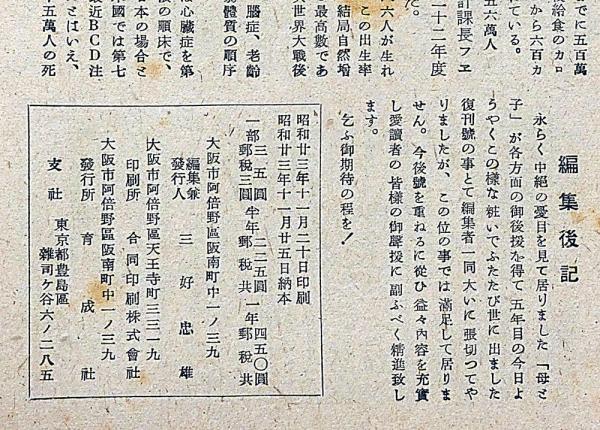 編集後記
永らく中絶の憂目を見て居りました「母と
子」が各方面の御後援を得て五年目の今日よ
うやくこの様な粧いでふたたび世に出ました
復刊號の事とて編集者一同大いに張切つてや
りましたが、この位の事では滿足して居りま
せん。今後號を重ねるに從ひ益々内容を充實
し愛讀者の皆様の御聲援に副ふべく精進致し
ます。
乞ふ御期待の程を！
昭和廿三年十一月二十日印刷
昭和廿三年十一月廿五日納本
一部 三、五圓 半年 二二五圓 一年 四五〇圓
郵税三圓 郵税共 郵税共
大阪市阿倍野區阪南町中一ノ三九
編集兼
發行人 三好忠雄
大阪市阿倍野區天王寺町三三一九
印刷所 合同印刷株式會社
大阪市阿倍野區阪南町中一ノ三九
發行所 育成社
支社 東京都豊島區
雜司ヶ谷六ノ二八五
でに五百萬
給食のカロ
から六百カ
ている。
五六萬人
計課長フエ
二十二年度
た。
六人が生れ
この出生率
結局自然増
最高數であ
世界大戰後
腦症、老齡
體質の順序
は心臓症を第
の順床で、
本の場合と
國では第七
最近BCD注
とはいえ、
五萬人の死